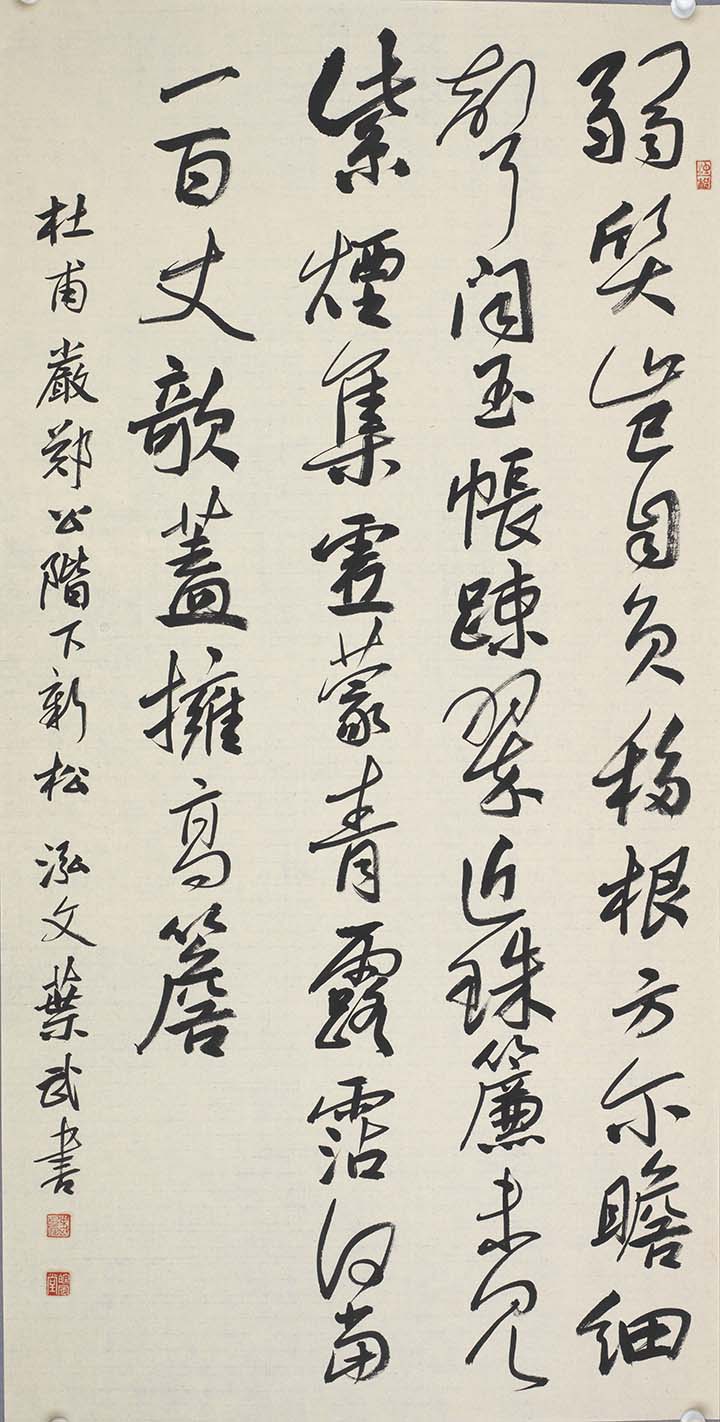 弱質豈自負移根方尔瞻細
聲聞玉帳踈翠近珠簾未見
紫煙集虛蒙青露霑何當
一百丈欹蓋擁高簷
杜甫嚴鄭公階下新松 泓文葉武書